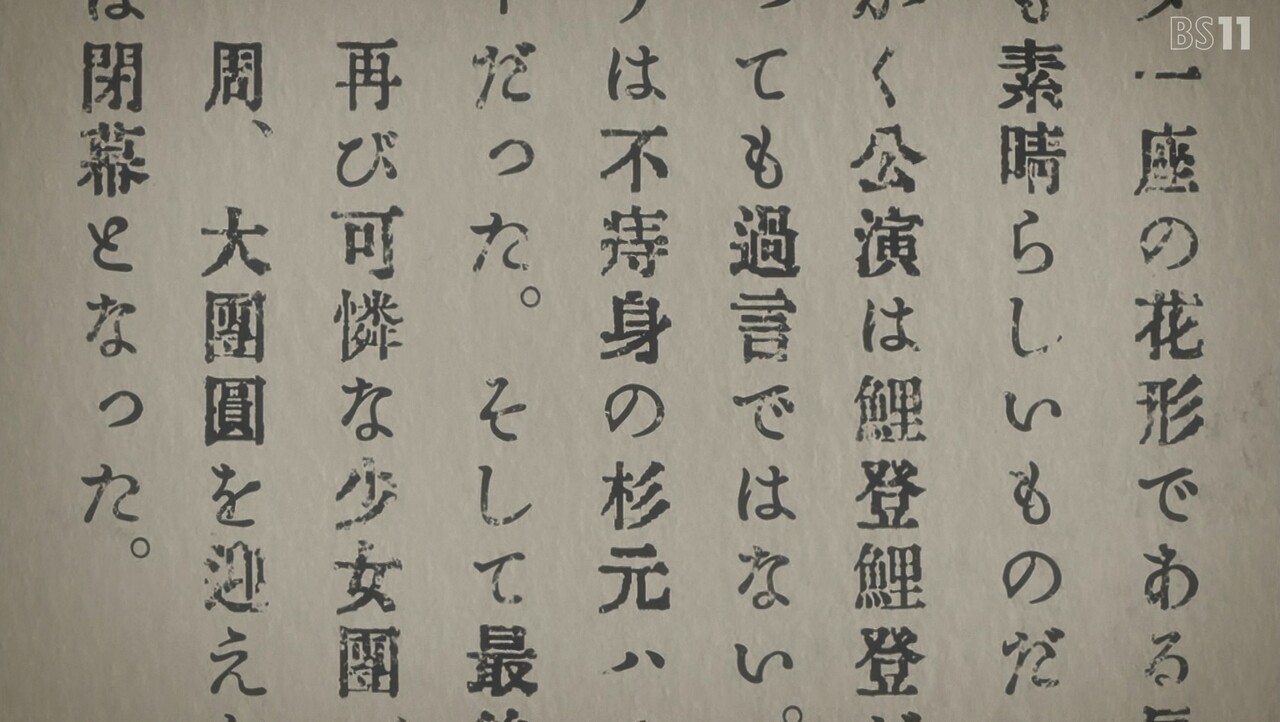 BS11
一座の花形である
も素晴らしいものだ
かく公演は鯉登鯉登
っても過言ではない。
は不痔身の杉元ハ
だった。 そして最
再び可憐な少女團
周、大團圓を迎え
は閉幕となった。